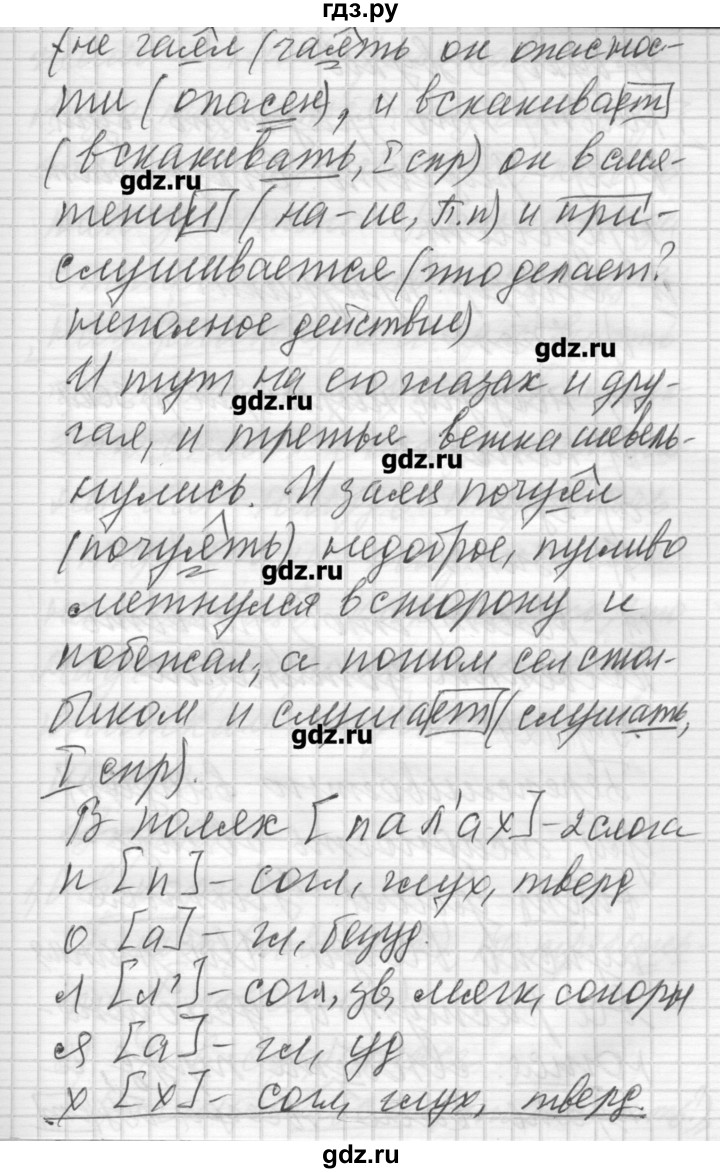 гдз.ру
(не чаял (чаять он опаснос-
ти (опасен), и вскакивает
(вскакивать, I спр) он в смя-
gdz.ru
тении (на-ие, П.п) и при-
слушивается (что делает?
неполное действие)
gdz.ru
И тут на его глазах и дру-
gdz.ru
гая, и третья ветка шевель-
gdz.ru
нулись. И заяц почуял
(почуять) недоброе, пугливо
gdz.ru
метнулся в сторону и
побежал, а потом сел стол-
биком и слушает (слушать,
gdz.ru
I спр).
В полях [пал'ах]-2 слога
п [п] - согл, глух, тверд
о [а] - гл, безуд.
л [л'] - согл, зв, мягк, сонорн
я [а] - гл, уд
х [х] - согл, глух, тверд.
gdz.ru